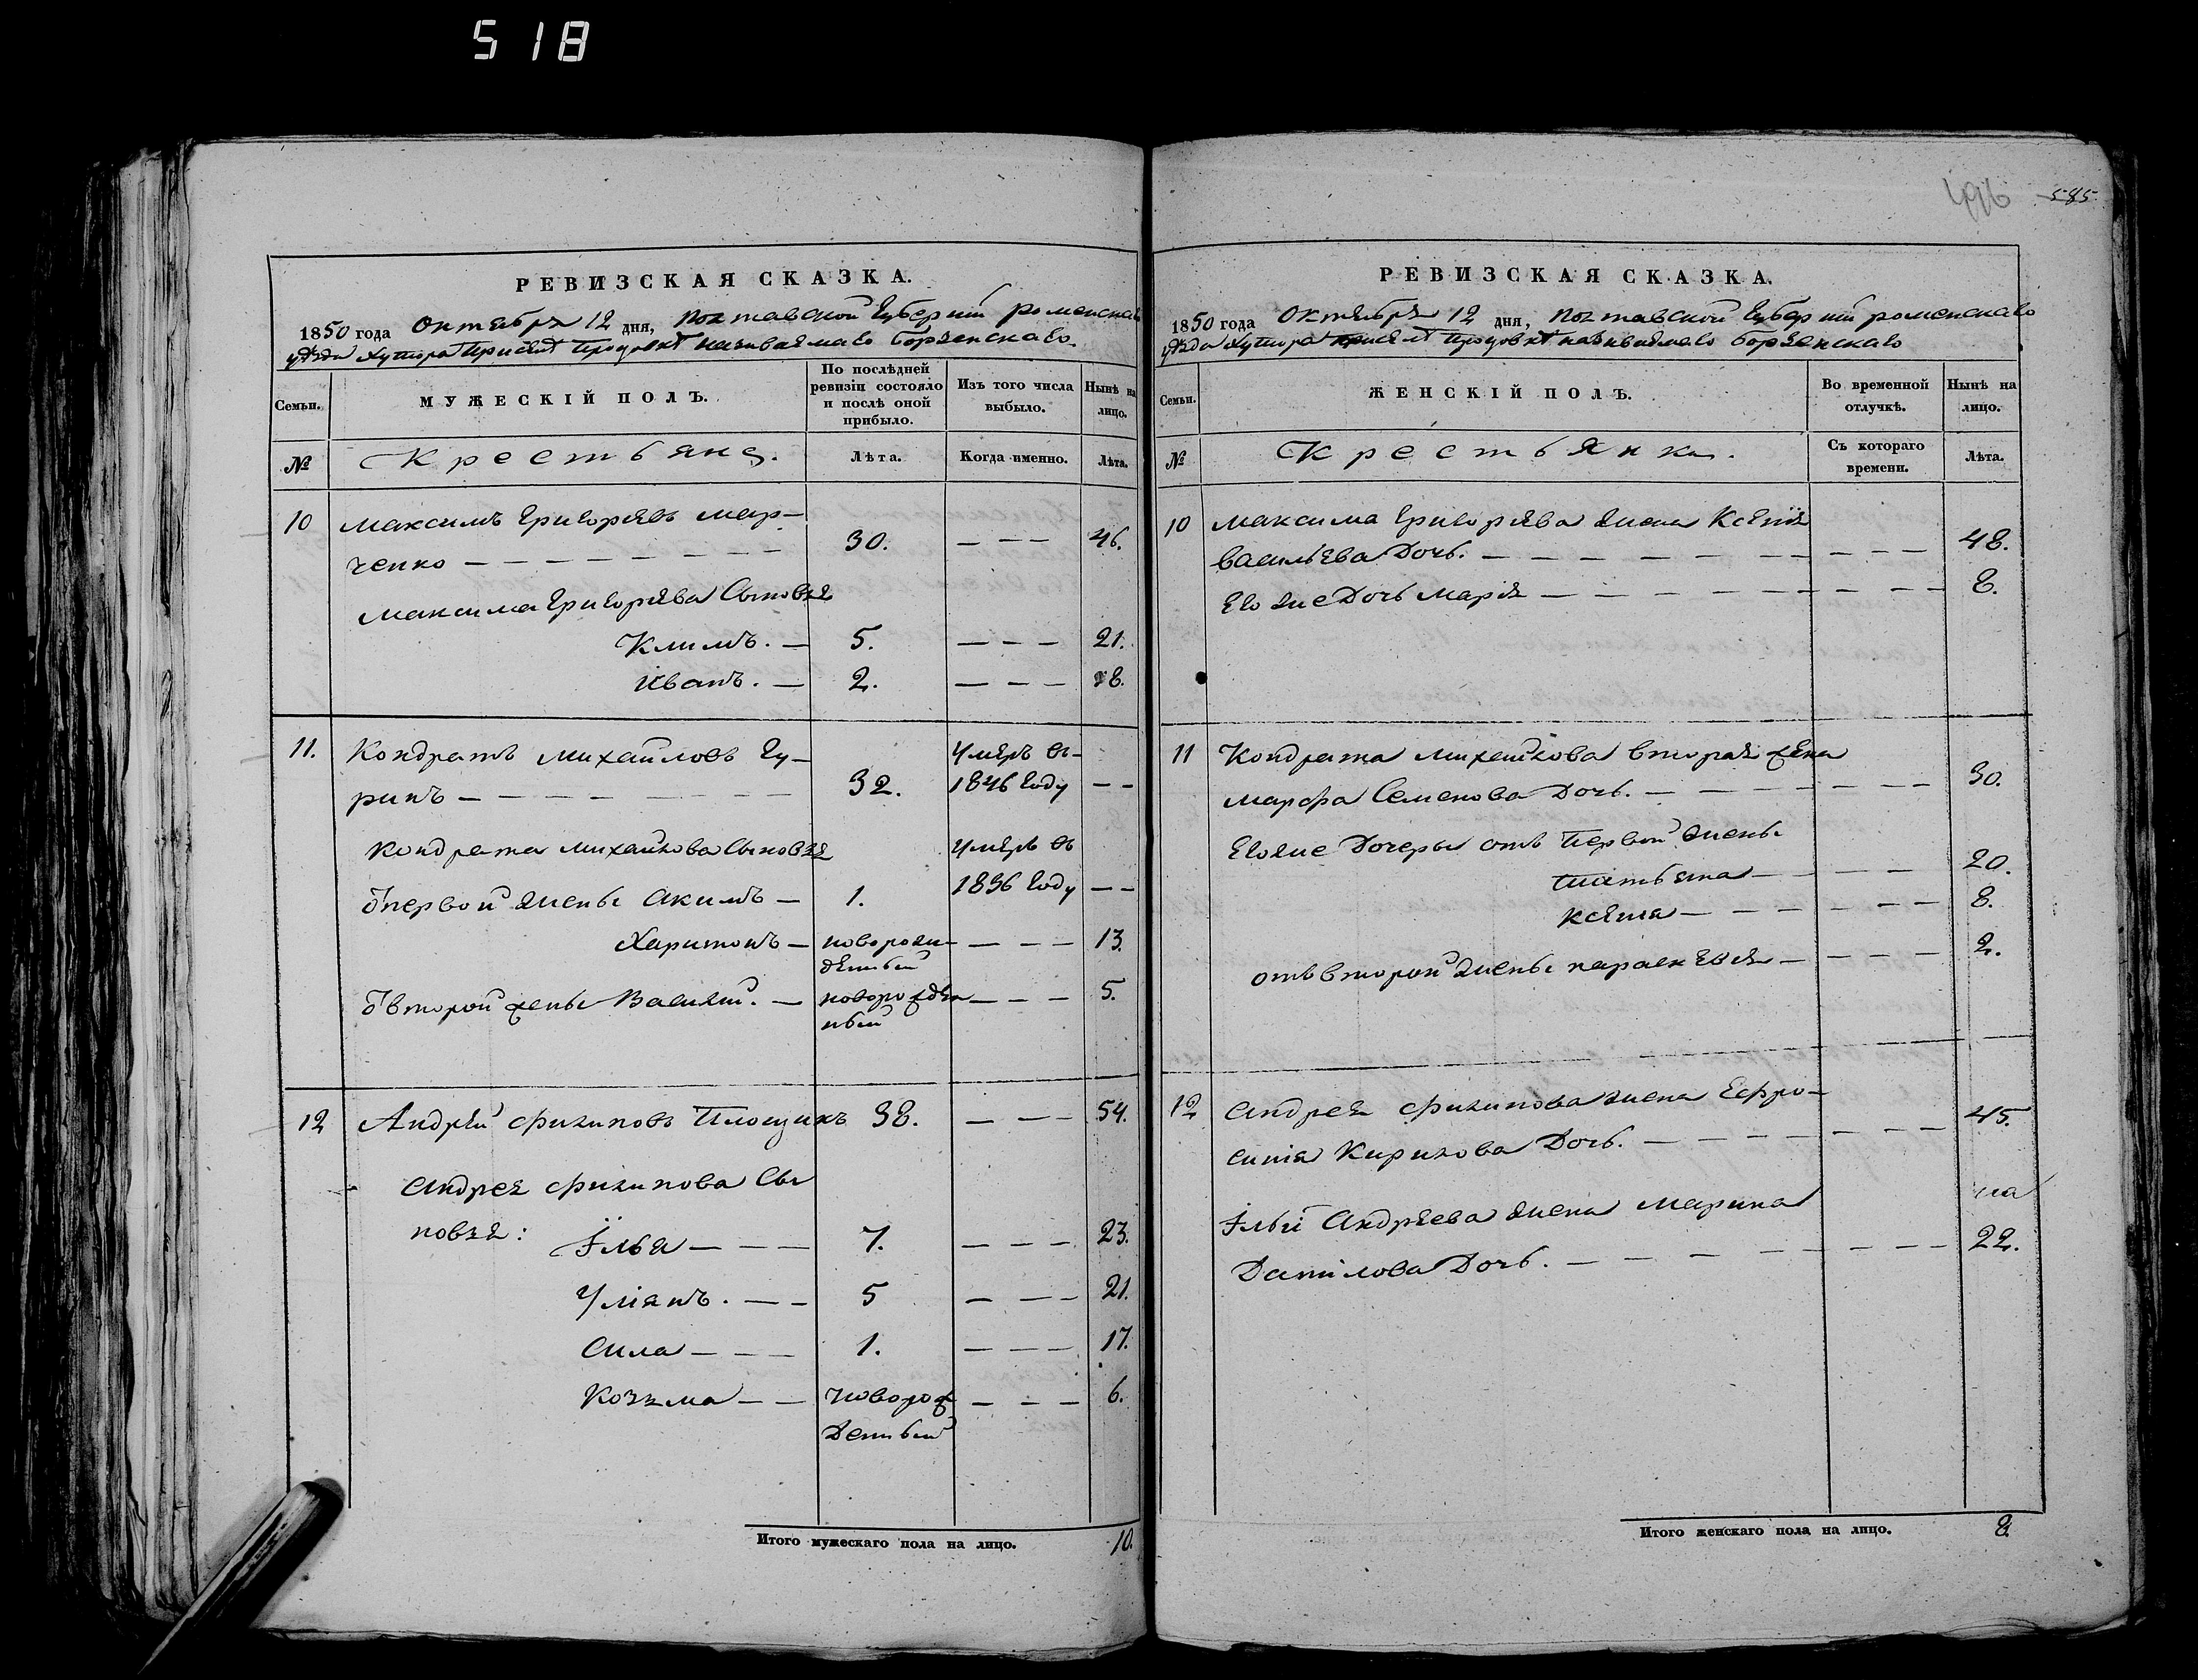 518
496 585
РЕВИЗСКАЯ СКАЗКА.
1850 года Октября 12 дня, Полтавской Губерніи роменскаго
уѣзда Хутора Называемаго Борзенскаго
Семьи.
МУЖЕСКІЙ ПОЛЪ.
По послѣдней ревизіи состояло и послѣ оной прибыло.
Изъ того числа выбыло.
Нынѣ на лицо.
№
Крестьяне.
Лѣта.
Когда именно.
Лѣта.
10 Максимъ Григорьевъ Мар-
ченко — 30. — — — 46.
Максима Григорьева Сыновья
Климъ. — 5. — — — 21.
Иванъ. — 2. — — — 18.
11. Кондратъ Михайловъ Гу- Умеръ въ
ринъ — 32. 1846 Году — —
Кондрата Михайлова Сыновья умеръ въ
первой жены Акимъ — 1. 1836 Году — —
Харитонъ — новорож- — — — 13.
денный
второй жены Василій. — новорожден — — — 5.
ный
12 Андрей Филиповъ Площикъ 38. — — — 54.
Андрея Филипова Сы
новья: Илья — — — 7. — — — 23.
Уліянъ. — — 5 — — — 21.
Сила — — — 1. — — — 17.
Козьма — — Новорож — — — 6.
Денный
Итого мужескаго пола на лицо. 10.
РЕВИЗСКАЯ СКАЗКА.
1850 года Октября 12 дня, Полтавской Губерніи роменскаго
уѣзда Хутора называемаго Борзенскаго
Семьи.
ЖЕНСКІЙ ПОЛЪ.
Во временной отлучкѣ.
Нынѣ на лицо.
№
Крестьянки.
Съ котораго времени.
Лѣта.
10 Максима Григорьева жена Ксенія
Васильева Дочь. — 48.
Его же Дочь Марія — 8.
11 Кондрата Михайлова вторая жена
Марфа Семенова Дочь. — 30.
Его же Дочеры отъ Первой жены
Татьяна — 20.
Ксенія — 8.
отъ второй жены параскевія — 2.
12 Андрея Филипова жена Ефро-
синія Кирилова Дочь. — 45.
Ильи Андреева жена Марина
Данілова Дочь. — 22.
Итого женскаго пола на лицо. 8.